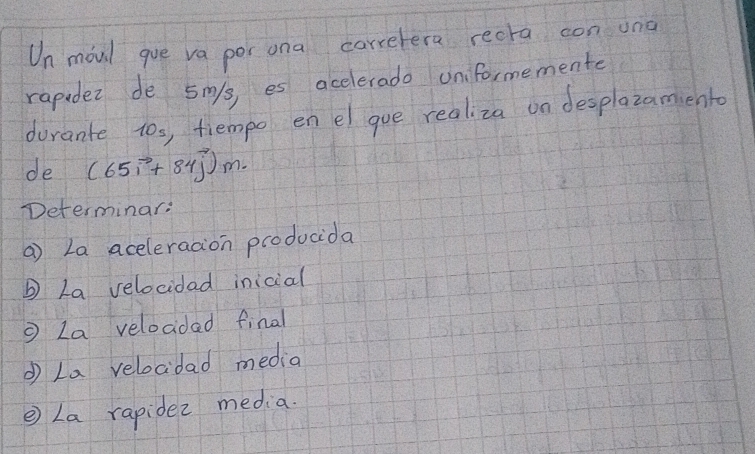 Un móvil que va por una carretera recta con una
rapidez de 5m/s, es acelerado uniformemente
durante 10s, tiempo en el que realiza un desplazamiento
de (65i⃗ + 84j⃗)m.
Determinar:
a) La aceleración producida
b) La velocidad inicial
c) La velocidad final
d) La velocidad media
e) La rapidez media.